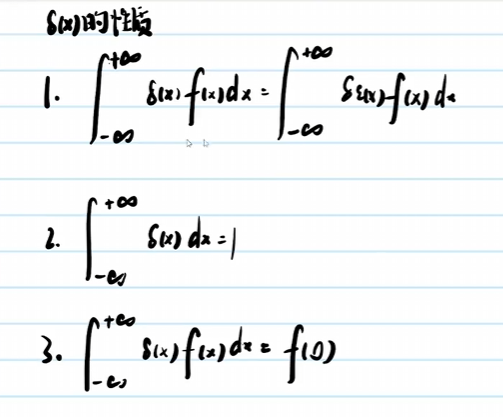 δ(x)的性质
1. ∫_{-∞}^{+∞} δ(x) f(x) dx = ∫_{-∞}^{+∞} δε(x) f(x) dx
2. ∫_{-∞}^{+∞} δ(x) dx = 1
3. ∫_{-∞}^{+∞} δ(x) f(x) dx = f(0)